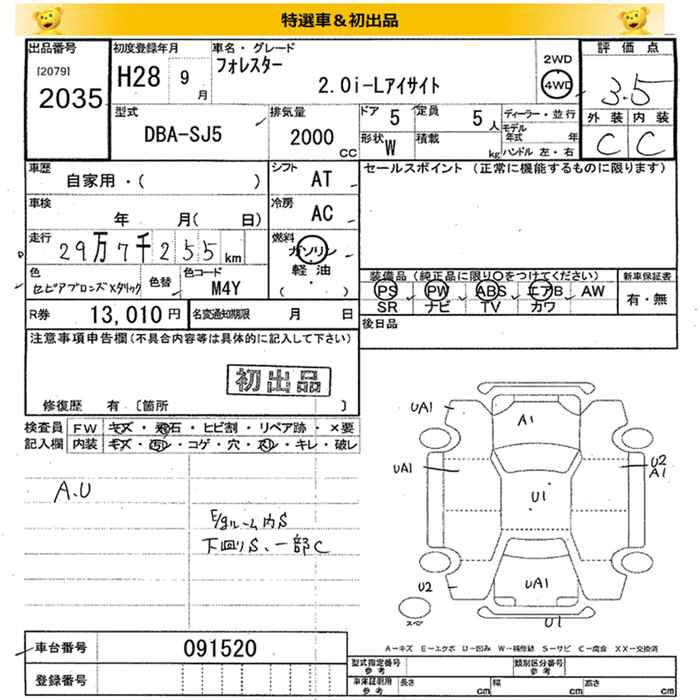 特選車＆初出品
出品番号 初度登録年月 車名・グレード 評価点
[2079] 2035 H28 9月 フォレスター 2.0i-Lアイサイト 2WD 4WD 3.5
型式 排気量 ドア 5 定員 5人 ディーラー・並行 外装 内装
DBA-SJ5 2000 CC 形状 W 積載 kg モデル年式 年 ハンドル 左・右 C C
車歴 自家用・( ) シフト AT セールスポイント (正常に機能するものに限ります)
車検 年 月( 日) 冷房 AC
走行 29万7千255km 燃料 ガソリン 軽油 ( )
色 セピアブロンズメタリック 色替 色コード M4Y
装備品 (純正品に限り○をつけてください) 新車保証書
PS PW ABS エアB AW 有・無
SR ナビ TV カワ
R券 13,010円 名変通知期限 月 日 後日品
注意事項申告欄(不具合内容等は具体的に記入して下さい)
初出品
修復歴 有 〔箇所 〕
検査員 FW キズ・飛石・ヒビ割・リペア跡・×要
記入欄 内装 キズ・汚レ・コゲ・穴・スレ・キレ・破レ
A.U
E/gルーム内S
下回りS、一部C
UA1 A1
UA1 U2 A1
U1
U2 UA1
スペ U1
A－キズ E－エクボ U－凹み W－補修跡 S－サビ C－腐食 XX－交換済
車台番号 091520 型式指定番号 参考 類別区分番号 参考
登録番号 車庫証明用 参考 長さ cm 幅 cm 高さ cm